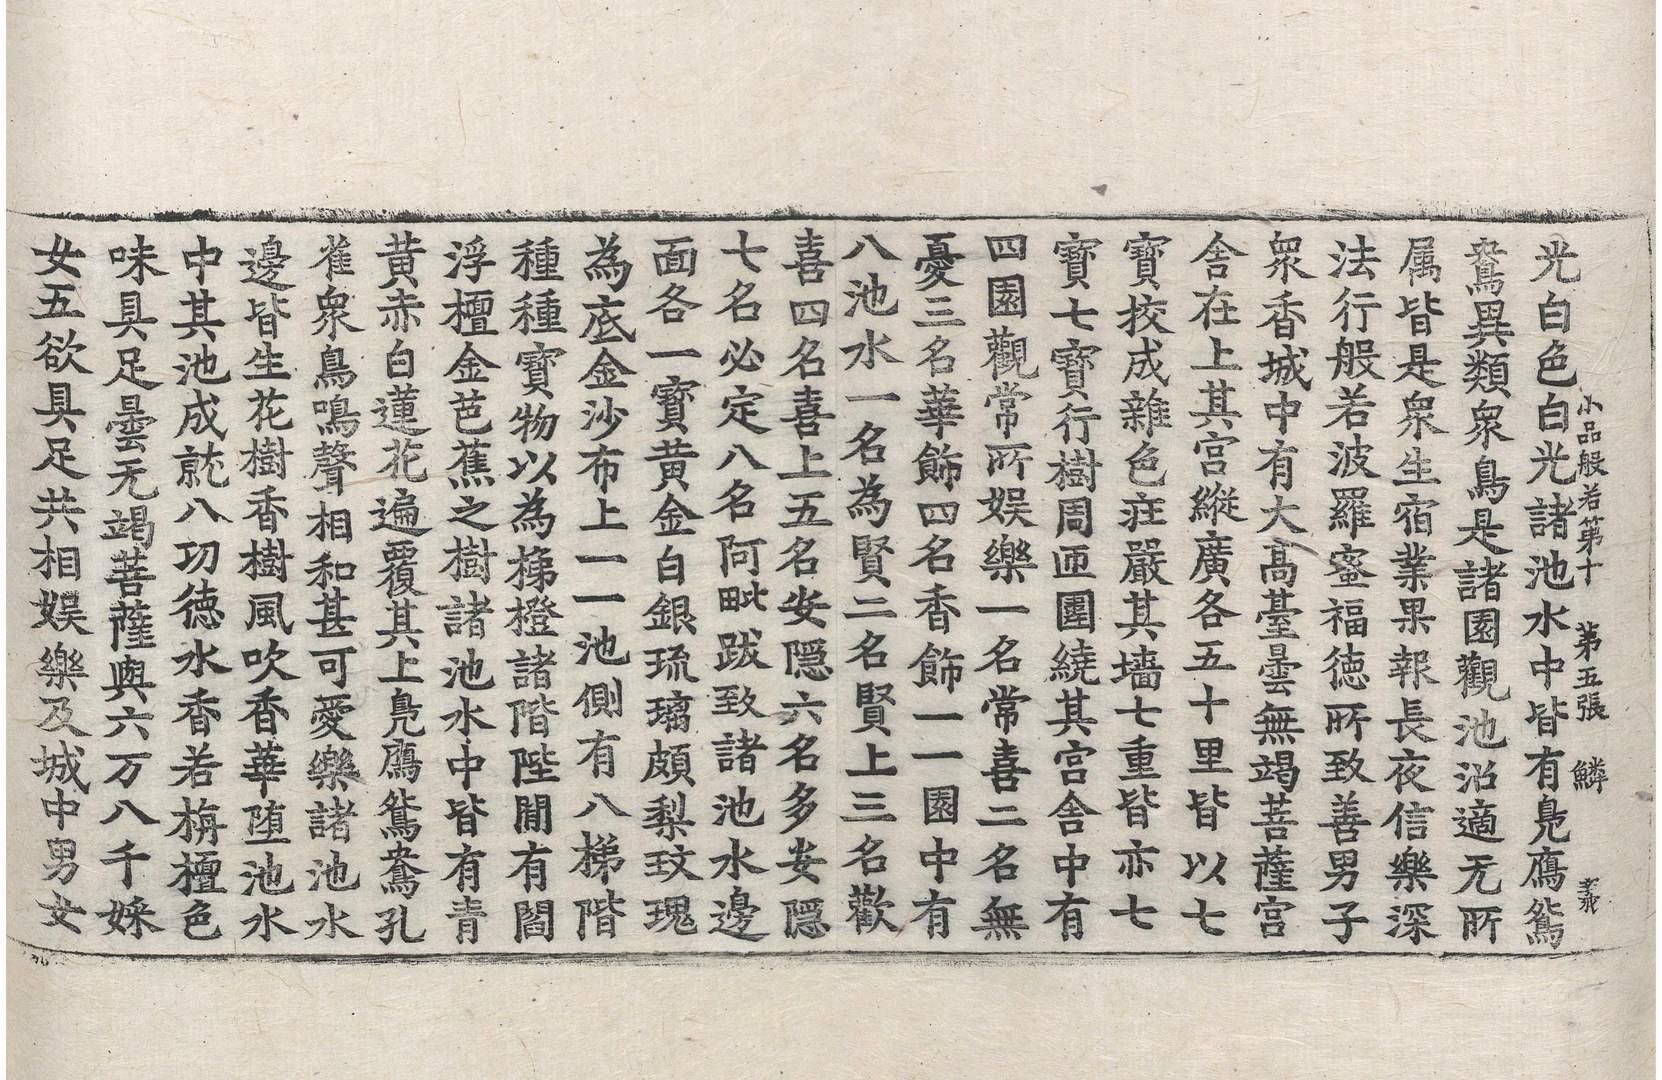 小品般若第十　第五張　鱗　義
光白色白光諸池水中皆有鳧鴈鴛
鴦異類衆鳥是諸園觀池沼適无所
属皆是衆生宿業果報長夜信樂深
法行般若波羅蜜福徳所致善男子
衆香城中有大髙臺曇無竭菩薩宮
舍在上其宮縱廣各五十里皆以七
寶挍成雜色莊嚴其墻七重皆亦七
寶七寶行樹周匝圍繞其宮舍中有
四園觀常所娱樂一名常喜二名無
憂三名華飾四名香飾一一園中有
八池水一名為賢二名賢上三名歡
喜四名喜上五名安隱六名多安隱
七名必定八名阿毗跋致諸池水邊
面各一寶黄金白銀琉璃頗梨玫瑰
為底金沙布上一一池側有八梯階
種種寶物以為梯橙諸階陛閒有閻
浮檀金芭蕉之樹諸池水中皆有青
黄赤白蓮花遍覆其上鳧鴈鴛鴦孔
雀衆鳥鳴聲相和甚可愛樂諸池水
邊皆生花樹香樹風吹香華堕池水
中其池成就八功徳水香若栴檀色
味具足曇无竭菩薩與六万八千婇
女五欲具足共相娱樂及城中男女